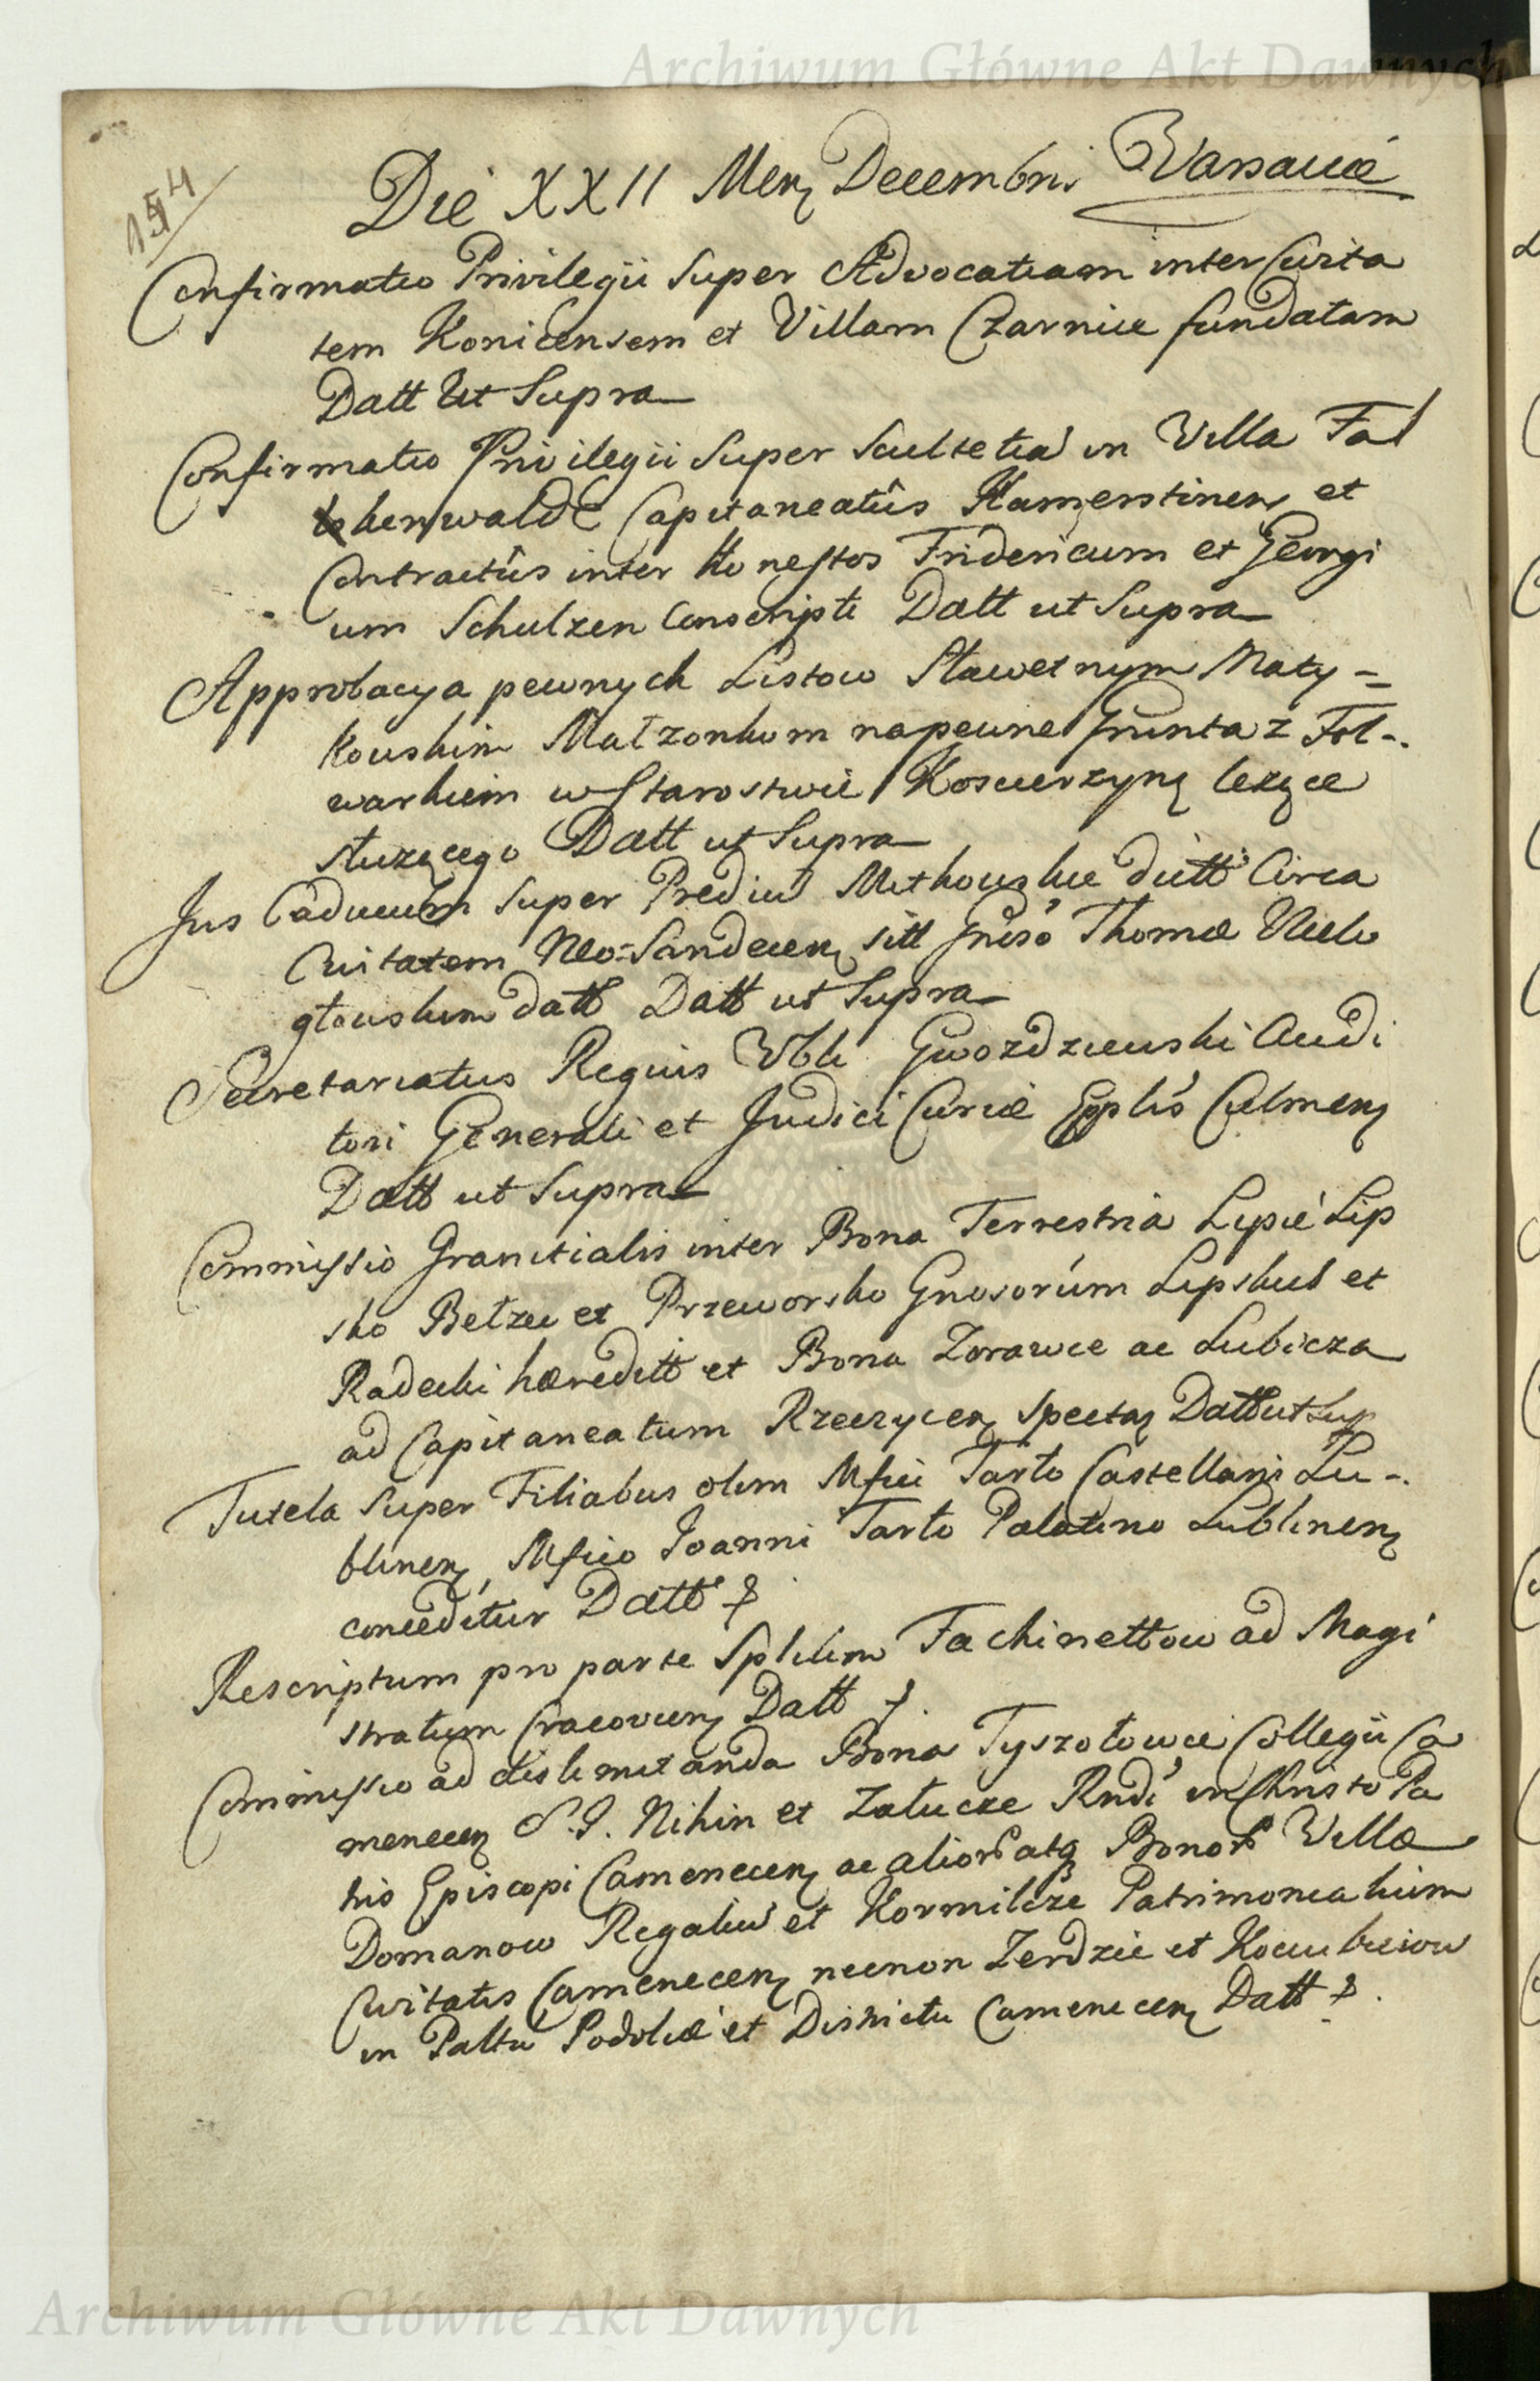 Archiwum Główne Akt Dawnych
154
Die XXII Mens Decembris Varsaviæ
Confirmatio Privilegii Super Advocatiam inter Civita
tem Konicensem et Villam Czarnice fundatam
Datt ut Supra
Confirmatio Privilegii Super Scultetia in Villa Fal
kenwalde Capitaneatûs Hamerstinen et
Contractûs inter Honestos Fridericum et Georgi
um Schulzen Conscripti Datt ut Supra
Approbacya pewnych Listow Sławetnym Maty-
kowskim Małzonkom na pewne Grunta z Fol-
warkiem w Starostwie Koscierzyn lezące
słuzącego Datt ut Supra
Jus Caducum Super Prediū Mitkowskie dictt Circa
Civitatem Neo-Sandecen sitt Gnŕso Thomæ Wielo
głowskim datt Datt ut Supra
Secretariatus Regius Vbli Gwozdziewski Audi
tori Generali et Judici Curiæ Epplis Culmen
Datt ut Supra
Commissio Granitialis inter Bona Terrestria Lipie Lip
sko Bełzec et Przeworsko Gnosorúm Lipskich et
Radecki hæreditt et Bona Zorawce ac Lubicza
ad Capitaneatum Rzeczycen Spectan Datt ut Sup
Tutela Super Filiabus olim Mfici Tarło Castellani Lu-
blinen Mfico Joanni Tarło Palatino Lublinen
conceditur Datt
Rescriptum pro parte Splium Fachinettow ad Magi
stratum Cracovien Datt
Commissio ad dislimitanda Bona Tyszołowce Collegii Ca
menecen S.J. Nihin et Załucze Rndi in Christo Pa
tris Episcopi Camenecen ac alior atq Bonor Villæ
Domanow Regaliū et Kormilcze Patrimonialium
Civitatis Camenecen necnon Zerdzie et Kocubiiow
in Paltu Podoliæ et Districtu Camenecen Datt
Archiwum Główne Akt Dawnych